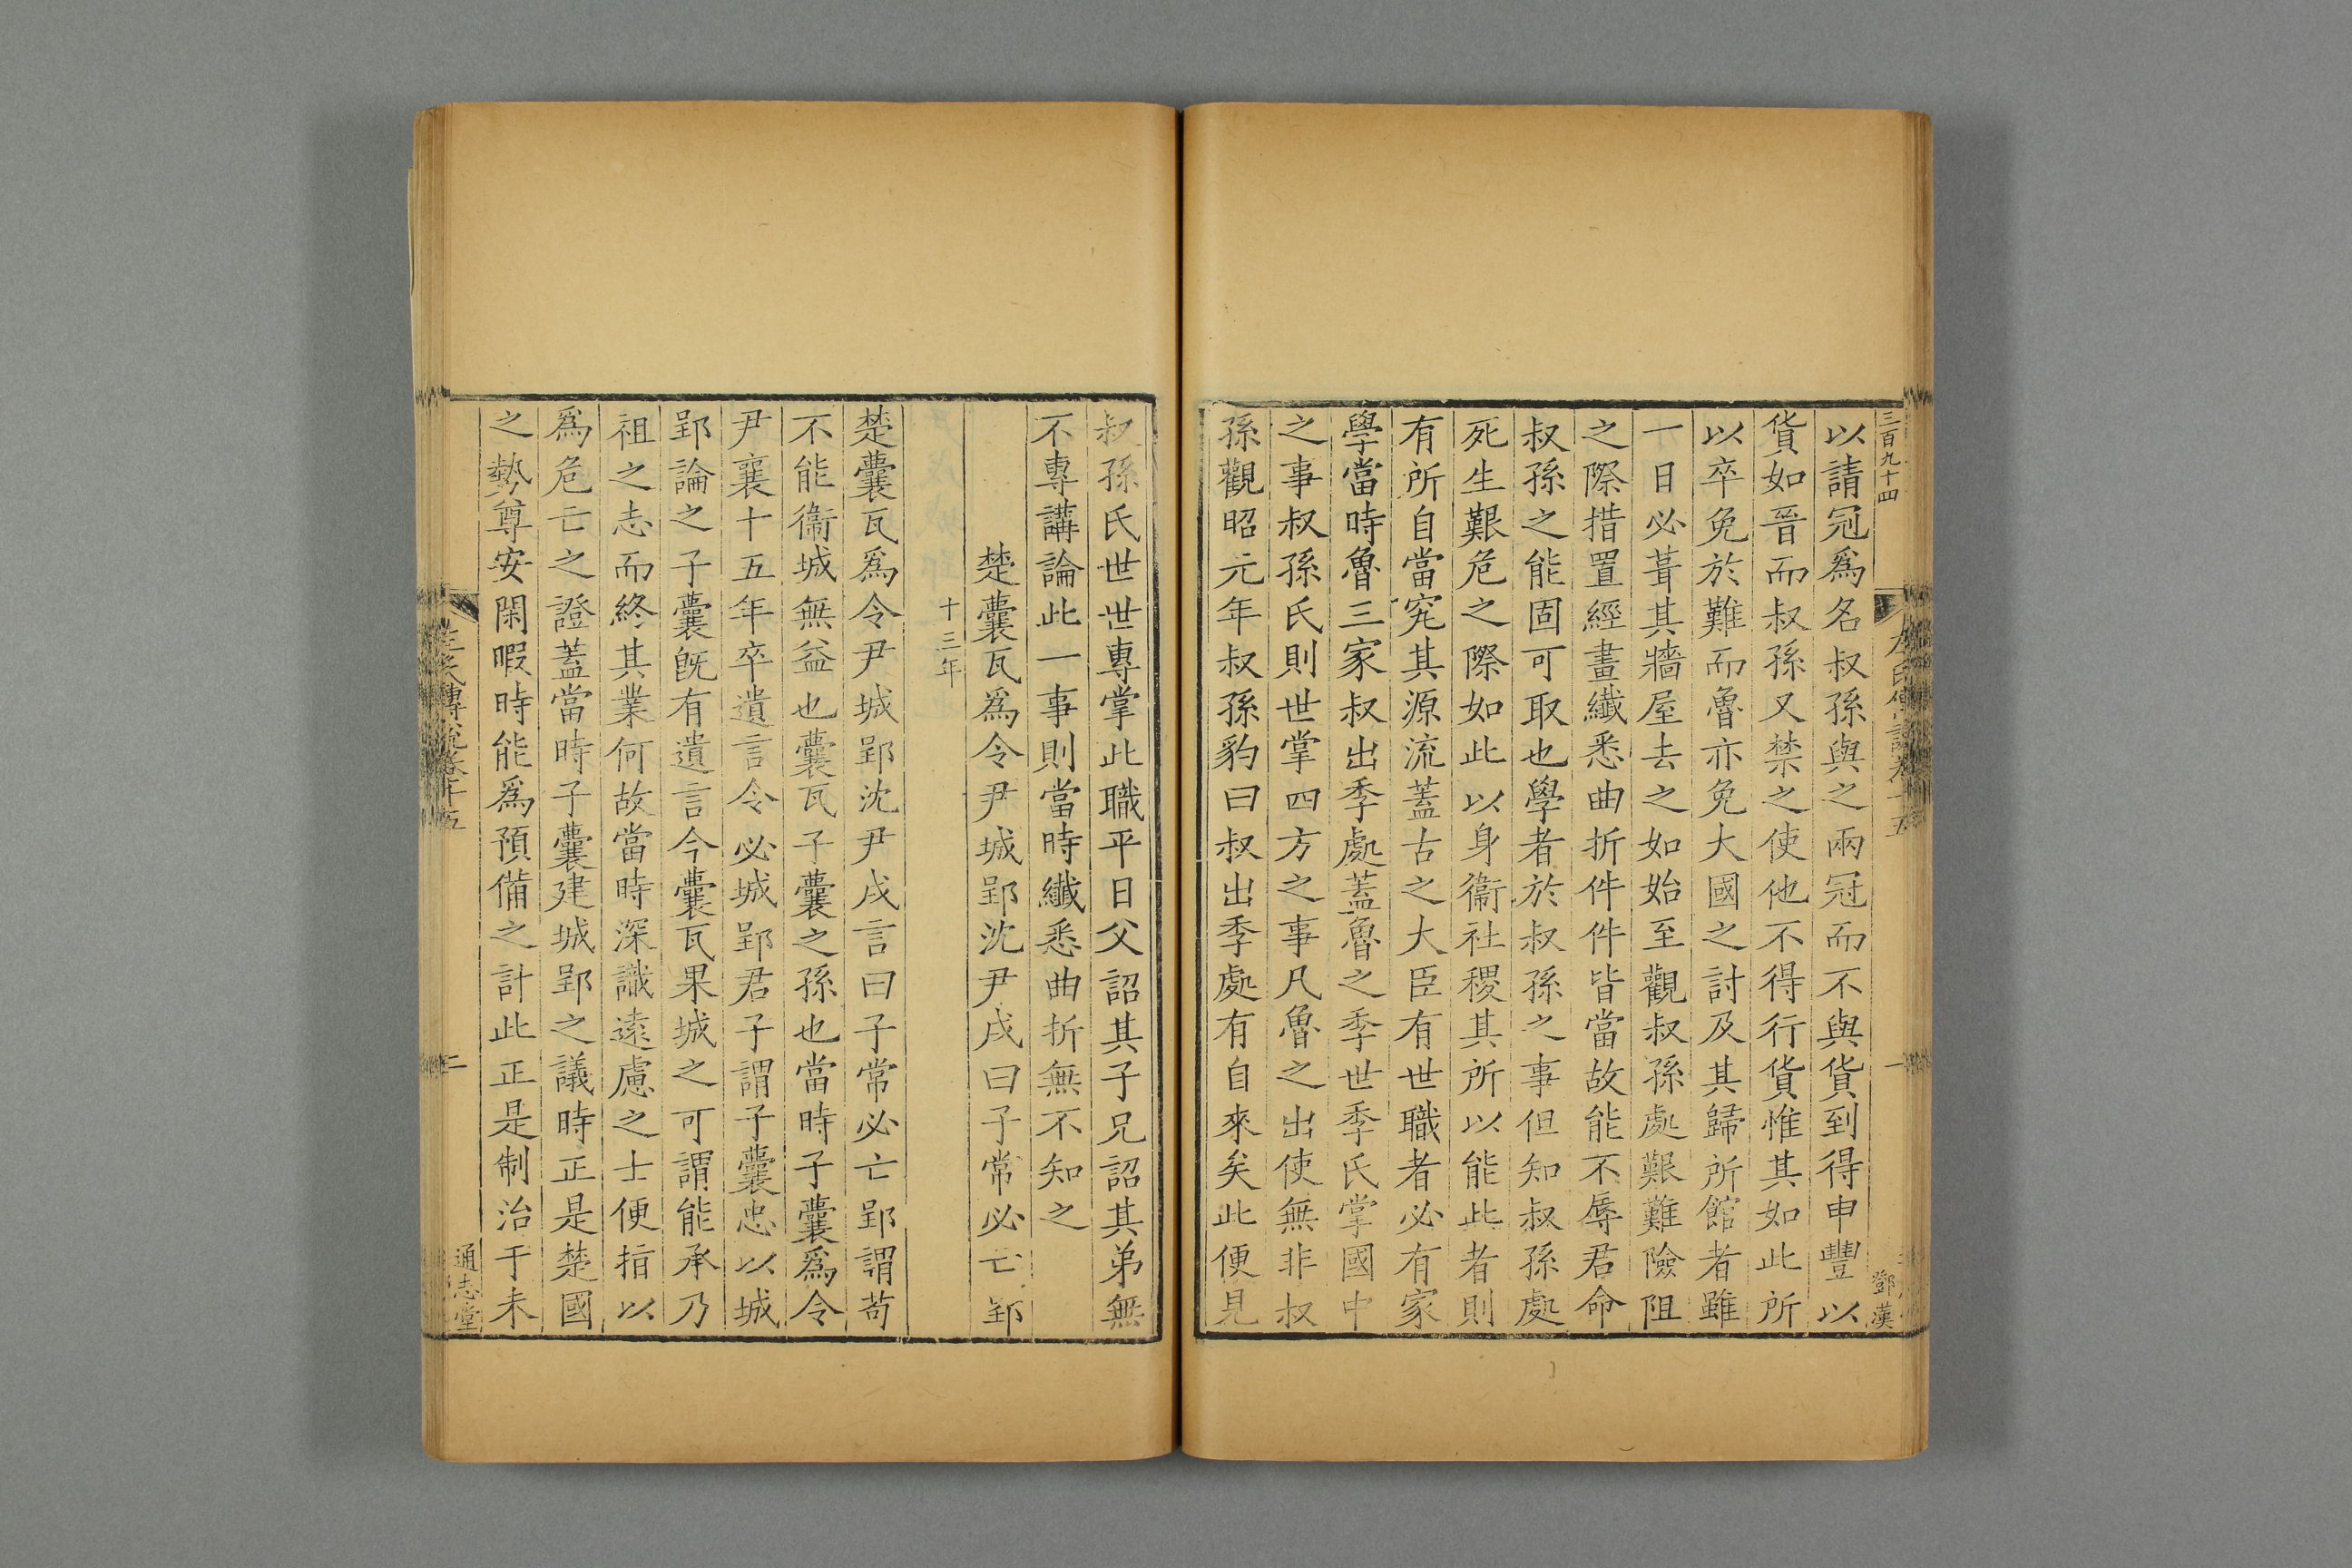 三百九十四
以請冠爲名叔孫與之兩冠而不與貨到得申豐以
貨如晉而叔孫又禁之使他不得行貨惟其如此所
以卒免於難而魯亦免大國之討及其歸所館者雖
一日必葺其牆屋去之如始至觀叔孫處艱難險阻
之際措置經畫纖悉曲折件件皆當故能不辱君命
叔孫之能固可取也學者於叔孫之事但知叔孫處
死生艱危之際如此以身衞社稷其所以能此者則
有所自當究其源流蓋古之大臣有世職者必有家
學當時魯三家叔出季處蓋魯之季世季氏掌國中
之事叔孫氏則世掌四方之事凡魯之出使無非叔
孫觀昭元年叔孫豹曰叔出季處有自來矣此便見
左氏傳說卷十五
一
鄧漢
叔孫氏世世專掌此職平日父詔其子兄詔其弟無
不專講論此一事則當時纖悉曲折無不知之
楚囊瓦爲令尹城郢沈尹戌曰子常必亡郢
十三年
楚囊瓦爲令尹城郢沈尹戌言曰子常必亡郢謂苟
不能衞城無益也囊瓦子囊之孫也當時子囊爲令
尹襄十五年卒遺言令必城郢君子謂子囊忠以城
郢論之子囊旣有遺言今囊瓦果城之可謂能承乃
祖之志而終其業何故當時深識遠慮之士便指以
爲危亡之證蓋當時子囊建城郢之議時正是楚國
之勢尊安閑暇時能爲預備之計此正是制治于未
左氏傳說卷十五
二
通志堂